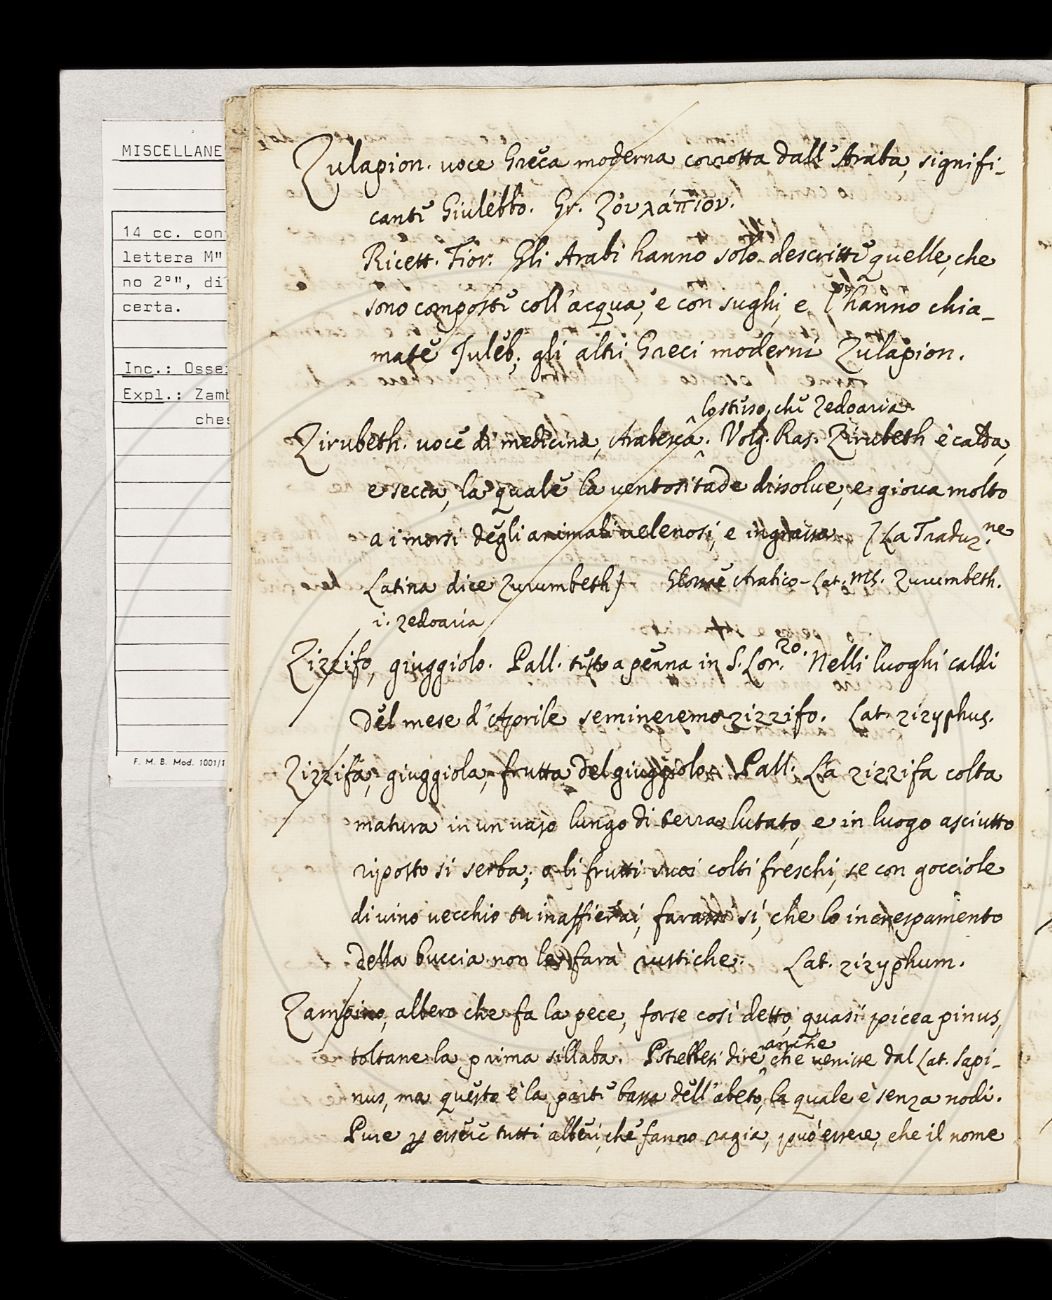 MISCELLANE
14 cc. con
lettera M"
no 2°", di
certa.
Inc.: Osse
Expl.: Zamb
ches
F. M. B. Mod. 1001/1
Zulapion. voce Greca moderna corrotta dall'Araba, signifi-
cante Giulebbo. Gr. Ζουλάπιον.
Ricett. Fior. Gli Arabi hanno solo descritte quelle, che
sono composte coll'acqua, e con sughi, e l'hanno chia-
mate Juleb, gli altri Greci moderni Zulapion.
lo stesso, che Zedoaria
Zirubeth. voce di medicina, Arabesca. Volg. Ras. Zirubeth è calda,
e secca, la quale la ventositade dissolve, e giova molto
a i morsi degli animali velenosi, e ingrassa. [La Traduz.ne
Latina dice Zurumbeth] Arabico-Lat. MS. Zurumbeth.
i. zedoaria
Zizzifo, giuggiolo. Pall. testo a penna in S. Lor.zo Nelli luoghi caldi
del mese d'Aprile semineremo zizzifo. Lat. zizyphus.
Zizzifa, giuggiola, frutta del giuggiolo. Pall. La zizzifa colta
matura in un vaso lungo di terra lutato, e in luogo asciutto
riposto si serba; o li frutti suoi colti freschi, se con gocciole
di vino vecchio tu inaffierai, farassi sì, che lo increspamento
della buccia non le farà rustiche. Lat. zizyphum.
Zampino, albero che fa la pece, forse così detto, quasi picea pinus,
toltane la prima sillaba. Potrebbesi dire anche che venisse dal Lat. Sapi-
nus, ma questa è la parte bassa dell'abeto, la quale è senza nodi.
Pure per essere tutti alberi, che fanno ragia, può essere, che il nome